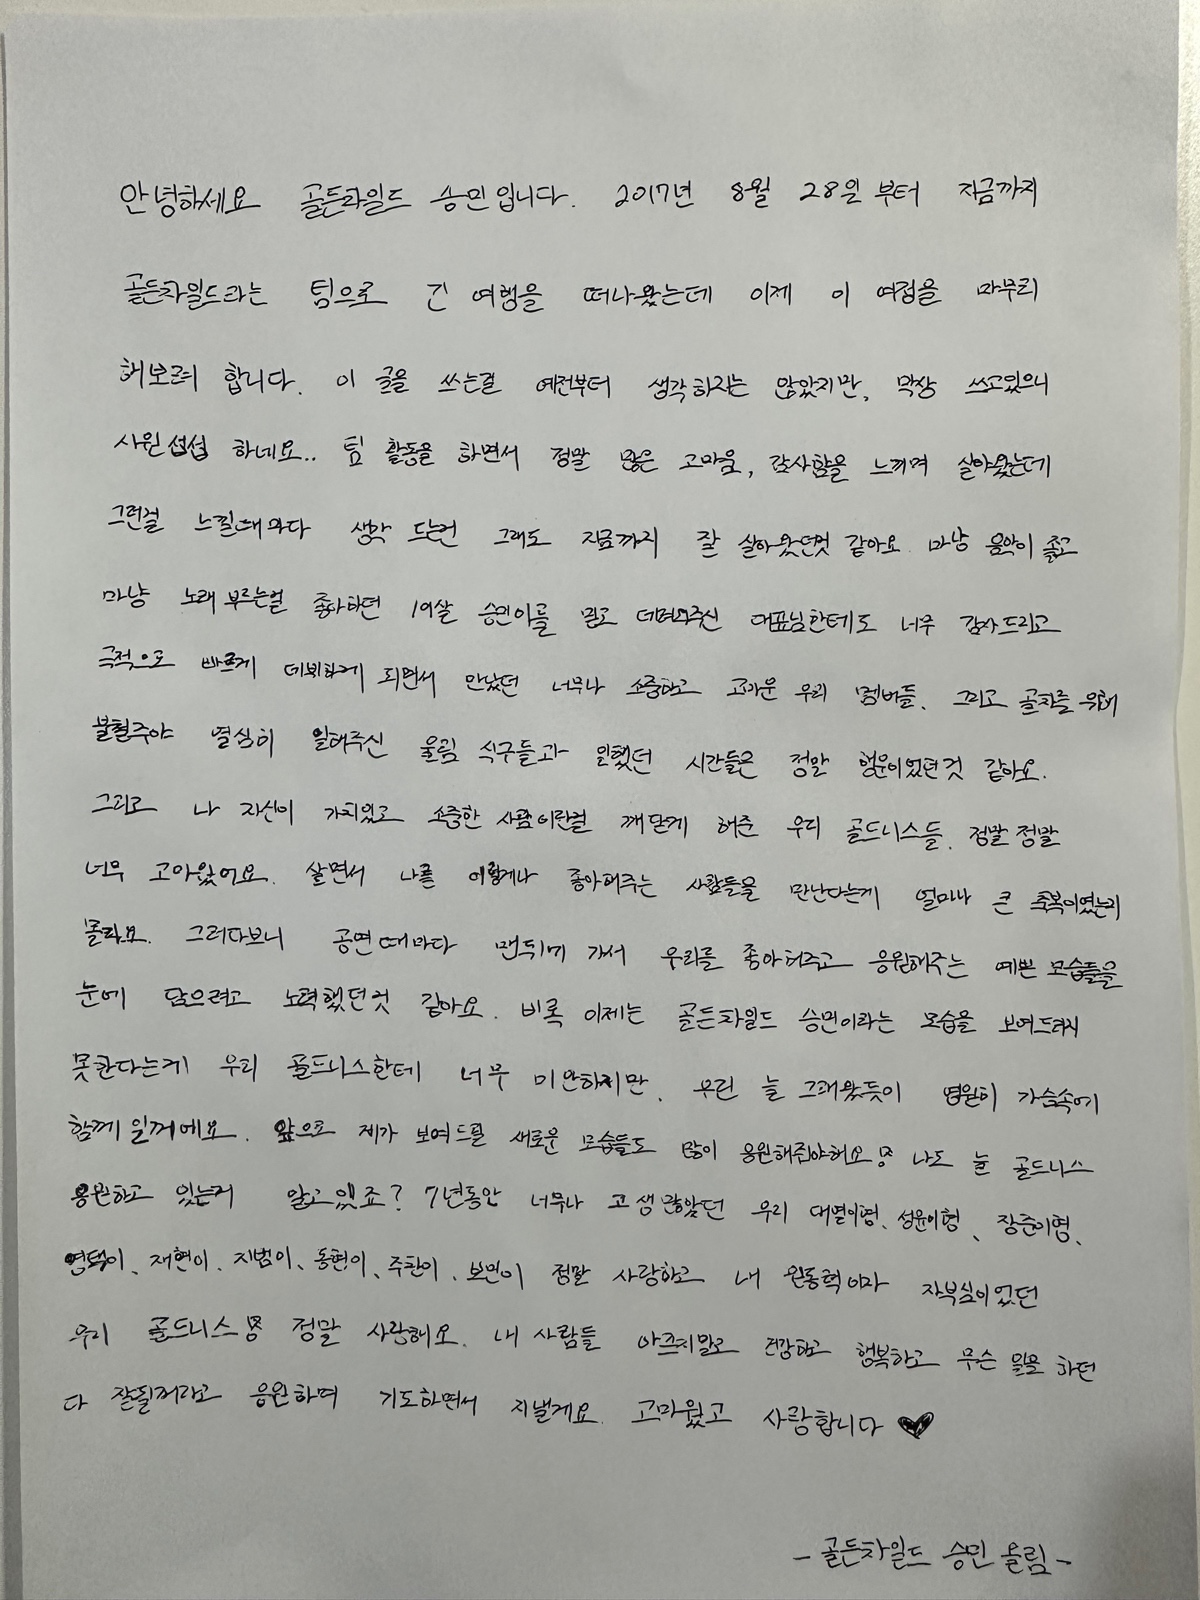 안녕하세요 골든차일드 승민입니다. 2017년 8월 28일부터 지금까지
골든차일드라는 팀으로 긴 여행을 떠나왔는데 이제 이 여정을 마무리
해보려 합니다. 이 글을 쓰는걸 예전부터 생각하지는 않았지만, 막상 쓰고있으니
시원섭섭 하네요.. 팀 활동을 하면서 정말 많은 고마움, 감사함을 느끼며 살아왔는데
그런걸 느낄때마다 생각 드는건 그래도 지금까지 잘 살아왔던것 같아요 마냥 음악이 좋고
마냥 노래 부르는걸 좋아하던 19살 승민이를 믿고 데려와주신 대표님한테도 너무 감사드리고
극적으로 빠르게 데뷔하게 되면서 만났던 너무나 소중하고 고마운 우리 멤버들, 그리고 골차를 위해
불철주야 열심히 일해주신 울림 식구들과 일했던 시간들은 정말 행운이었던것 같아요.
그리고 나 자신이 가치있고 소중한 사람이란걸 깨닫게 해준 우리 골드니스들, 정말 정말
너무 고마웠어요. 살면서 나를 이렇게나 좋아해주는 사람들을 만난다는게 얼마나 큰 축복이였는지
몰라요. 그러다보니 공연때마다 맨뒤에 가서 우리를 좋아해주고 응원해주는 예쁜 모습들을
눈에 담으려고 노력했던것 같아요. 비록 이제는 골든차일드 승민이라는 모습을 보여드리지
못한다는게 우리 골드니스한테 너무 미안하지만, 우린 늘 그래왔듯이 영원히 가슴속에
함께 일꺼에요. 앞으로 제가 보여드릴 새로운 모습들도 많이 응원해줘야해요 나도 늘 골드니스
응원하고 있는거 알고있죠? 7년동안 너무나 고생많았던 우리 대열이형, 성윤이형, 장준이형,
영택이, 재현이, 지범이, 동현이, 주찬이, 보민이 정말 사랑하고 내 원동력이자 자부심이었던
우리 골드니스 정말 사랑해요. 내 사람들 아프지말고 건강하고 행복하고 무슨 일을 하던
다 잘될꺼라고 응원하며 기도하면서 지낼게요. 고마웠고 사랑합니다 ♥
- 골든차일드 승민 올림 -